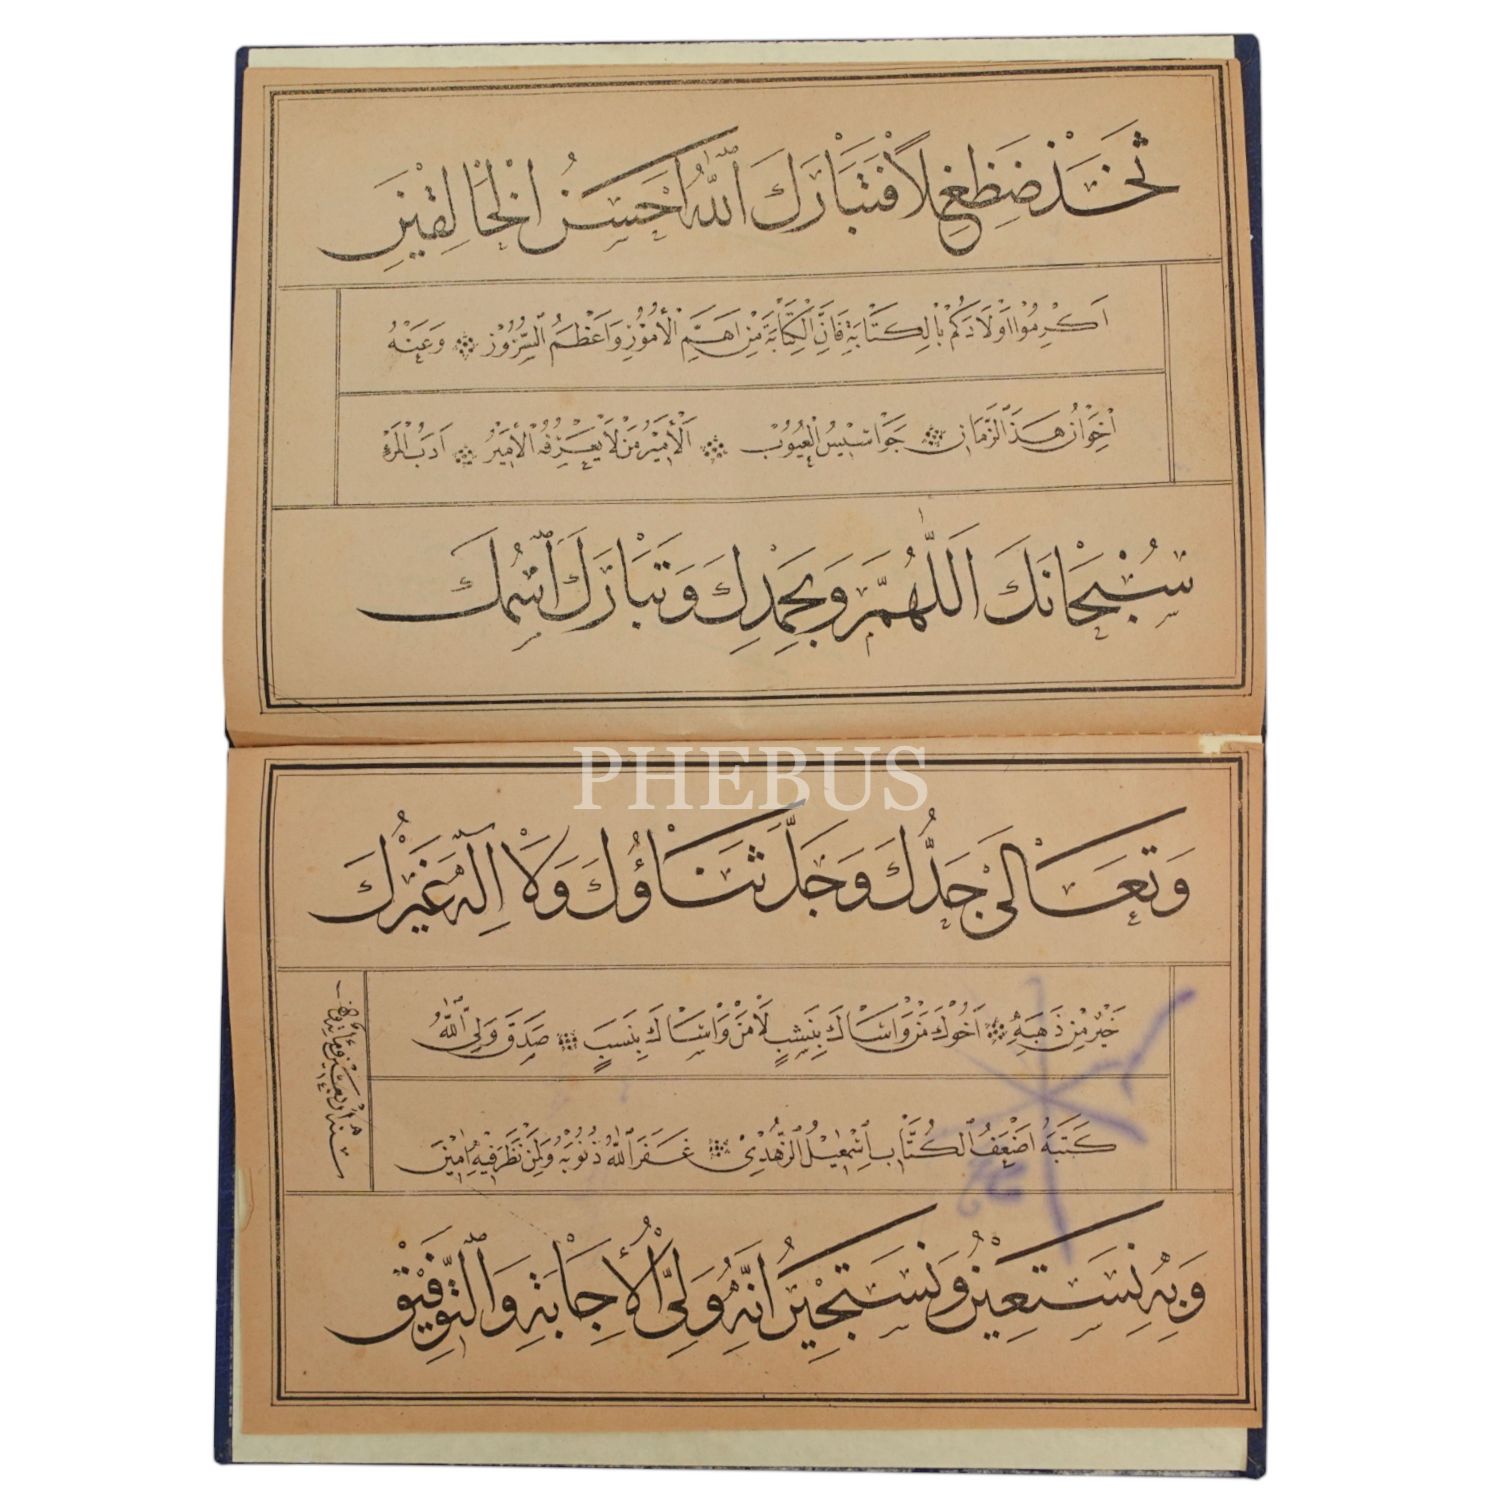 ثَخَذْ ضَظَغٍ لاً فَتَبَارَكَ اللّٰهُ اَحْسَنُ الْخَالِقِيْنَ
اَكْرِمُوا اَوْلَادَكُمْ بِالْكِتَابَةِ فَاِنَّ الْكِتَابَةَ مِنْ اَهَمِّ الْاُمُوْرِ وَاَعْظَمُ السُّرُوْرِ ❊ وَعَنْهُ
اِخْوَانُ هَذَا الزَّمَانِ ❊ جَوَاسِيْسُ الْعُيُوْبِ ❊ اَلْاَمِيْرُ مَنْ لَا يَعْرِفُهُ الْاَمِيْرُ ❊ اَدَبُ الْمَرْءِ
سُبْحَانَكَ اَللّٰهُمَّ وَبِحَمْدِكَ وَتَبَارَكَ اسْمُكَ
PHEBUS
وَتَعَالٰى جَدُّكَ وَجَلَّ ثَنَاؤُكَ وَلَا اِلٰهَ غَيْرُكَ
خَيْرٌ مِنْ ذَهَبِهِ ❊ اَخُوْكَ مَنْ وَاسَاكَ بِنَشَبٍ لَا مَنْ وَاسَاكَ بِنَسَبٍ ❊ صَدَقَ وَلِيُّ اللّٰهِ
كَتَبَهُ اَضْعَفُ الْكُتَّابِ اِسْمٰعِيْلُ الزُّهْدِيْ ❊ غَفَرَ اللّٰهُ ذُنُوْبَهُ وَلِمَنْ نَظَرَ فِيْهِ اٰمِيْنَ
سنة اربعين ومأتين والف
وَبِهِ نَسْتَعِيْنُ وَنَسْتَجِيْرُ اِنَّهُ وَلِيُّ الْاِجَابَةِ وَالتَّوْفِيْقِ